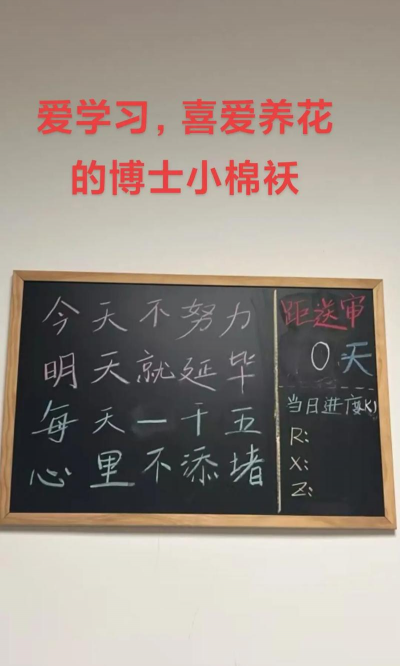 爱学习，喜爱养花
的博士小棉袄
今天不努力
明天就延毕
每天一千五
心里不添堵
距送审
0天
当日进度(K)
R:
X:
Z: